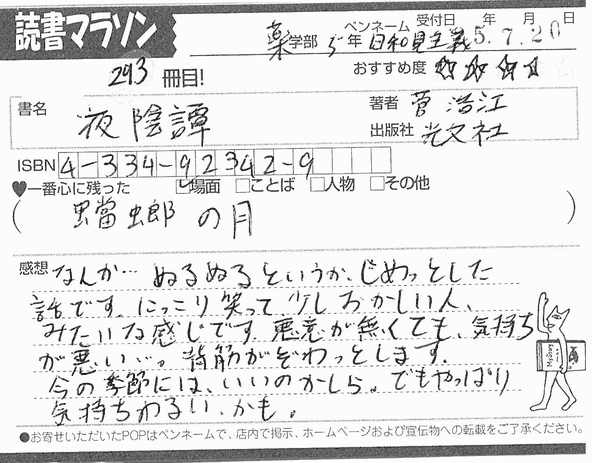 読書マラソン
薬学部 5年 ペンネーム 日和見主義 受付日 5年7月20日
293冊目!
おすすめ度 ☆☆☆☆
書名 夜陰譚
著者 菅 浩江
出版社 光文社
ISBN 4-334-92342-9
♥一番心に残った □場面 □ことば □人物 □その他
( 蟷螂の月 )
感想 なんか… ぬるぬるというか、じめっとした
話です。にっこり笑って少しおかしい人、
みたいな感じです。悪意が無くても、気持ち
が悪い…。背筋がぞわっとします。
今の季節には、いいのかしら。でもやっぱり
気持ちわるい、かも。
●お寄せいただいたPOPはペンネームで、店内で掲示、ホームページおよび宣伝物への転載をご了承ください。